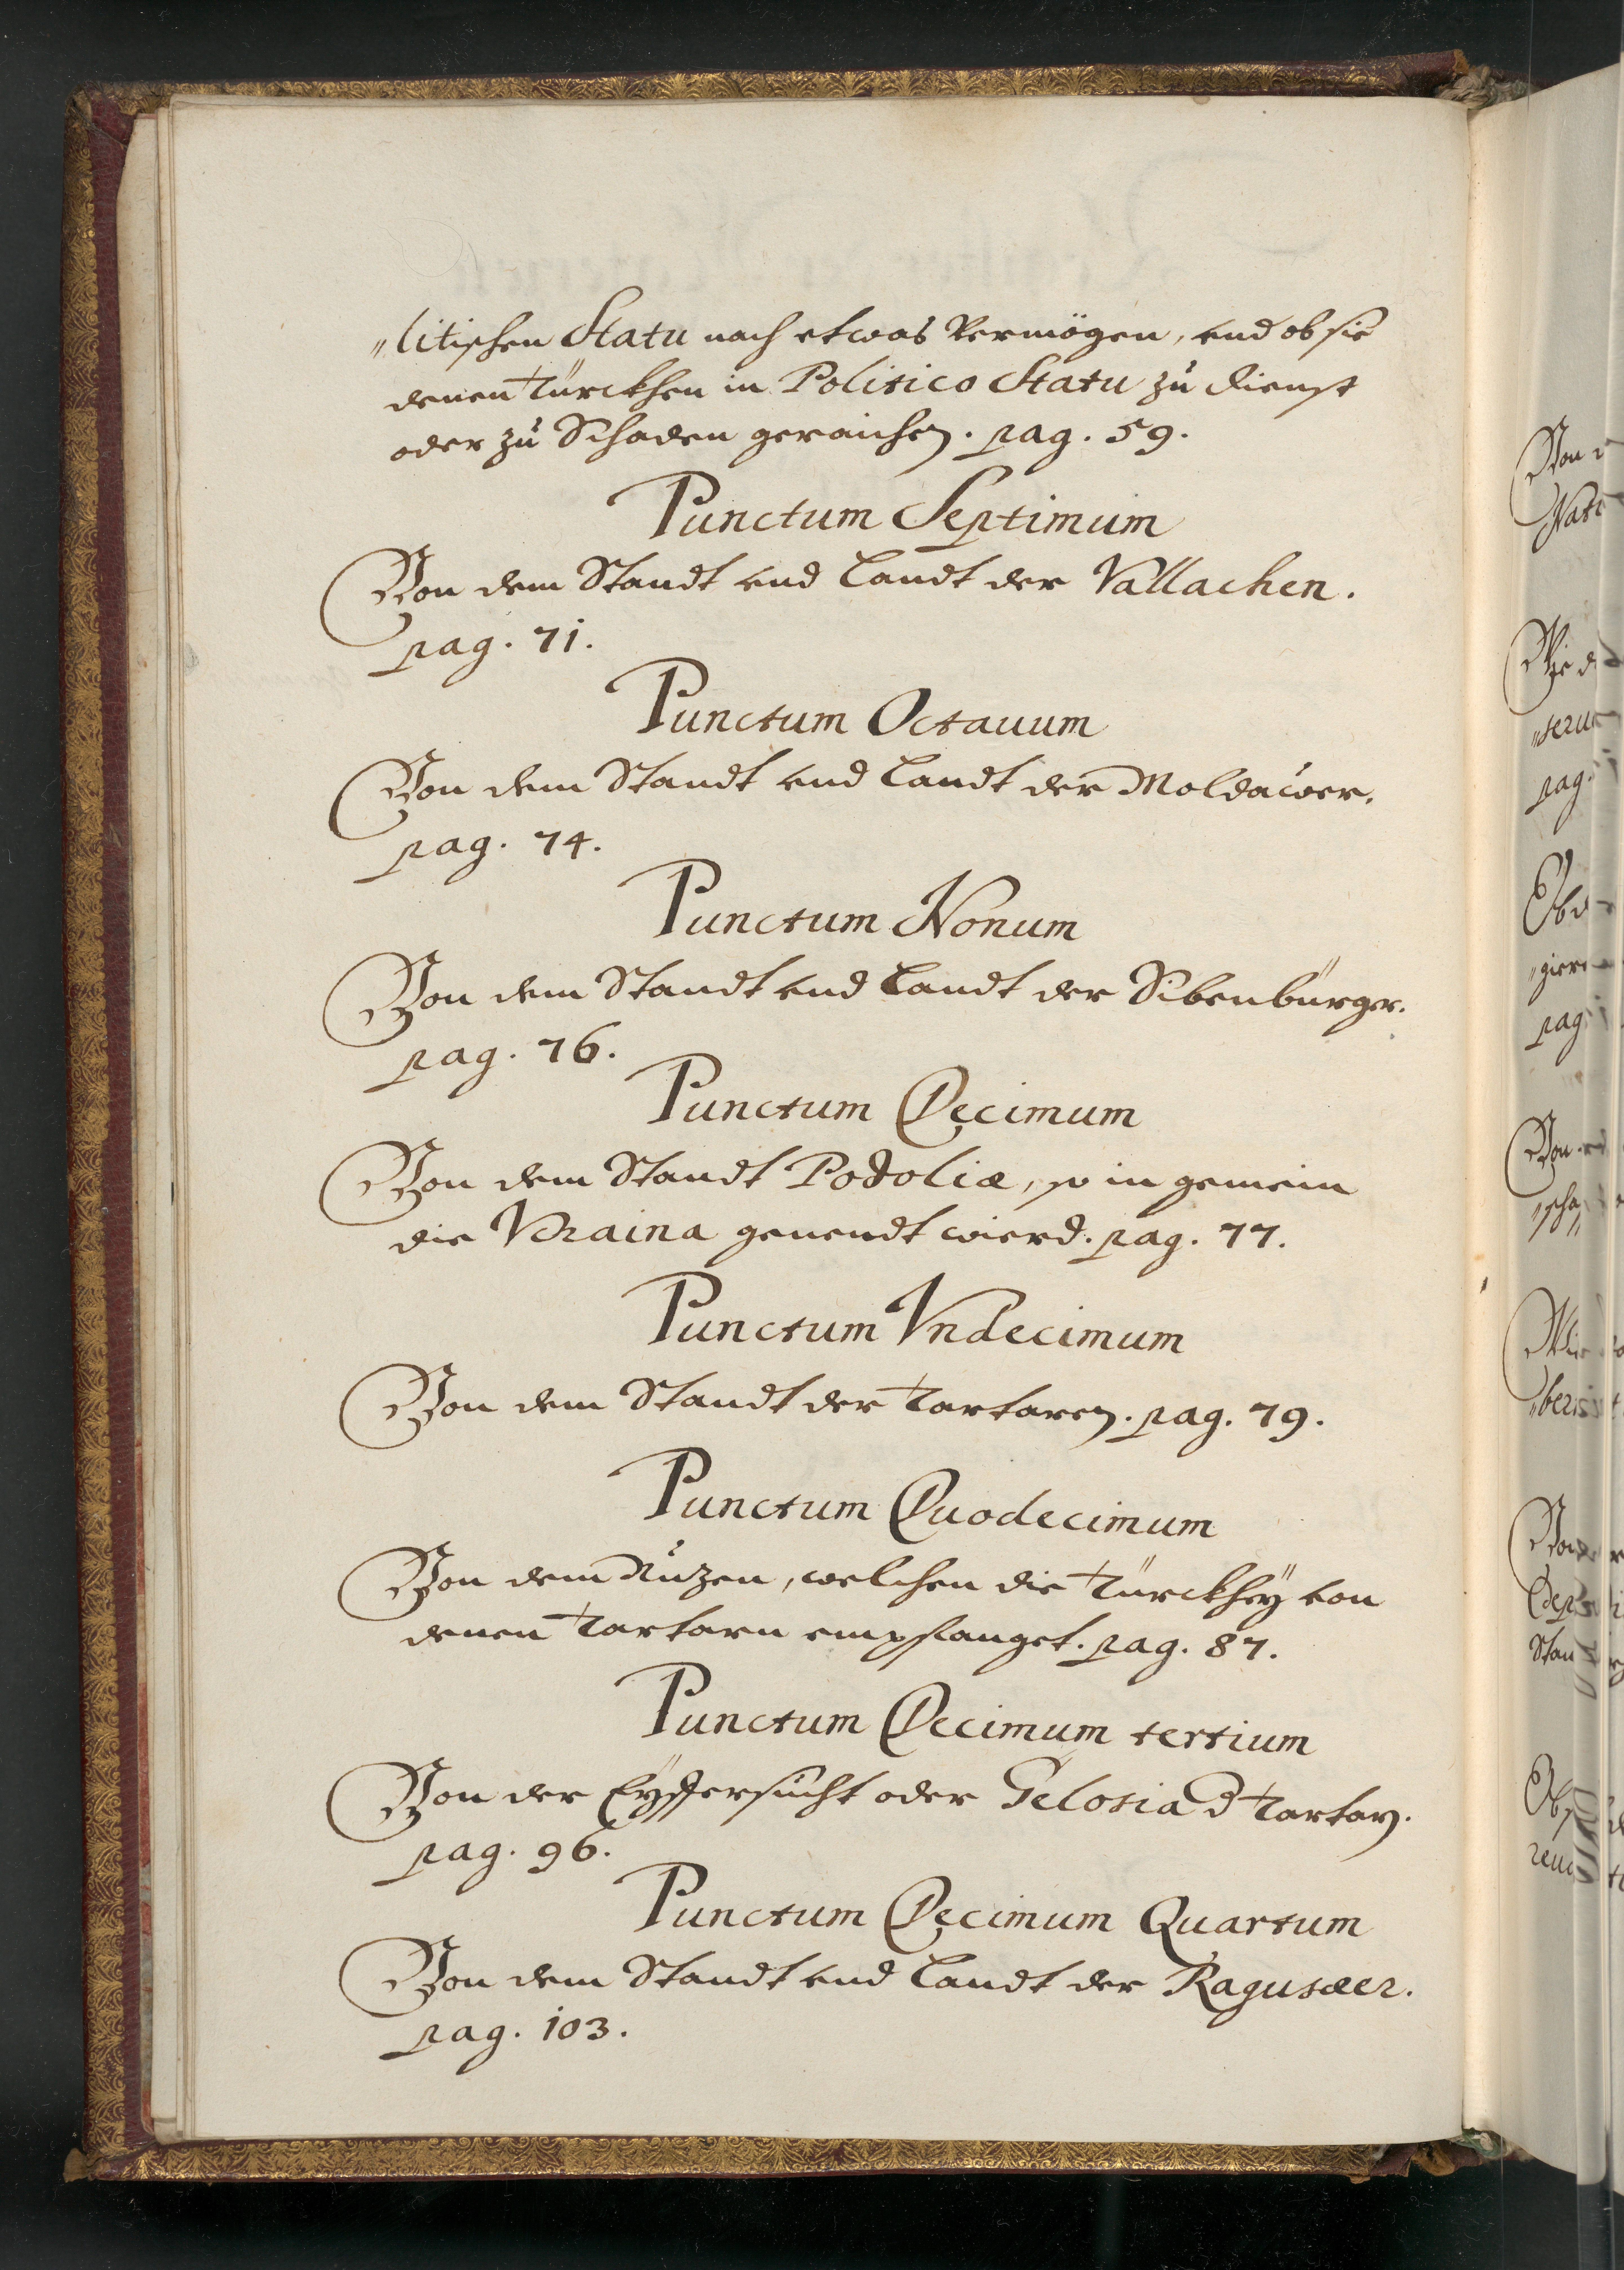 „litischen Statu nach etwas Vermögen, vnd ob sie
denen Türckhen in Politico Statu zu dienst
oder zu Schaden geraichen. pag. 59.
Punctum Septimum
Von dem Standt vnd Landt der Vallachen.
pag. 71.
Punctum Octauum
Von dem Standt vnd Landt der Moldawer.
pag. 74.
Punctum Nonum
Von dem Standt vnd Landt der Sibenbürger.
pag. 76.
Punctum Decimum
Von dem Standt Podoliæ, so in gemein
die Vcraina genendt wierd. pag. 77.
Punctum Vndecimum
Von dem Standt der Tartaren. pag. 79.
Punctum Duodecimum
Von dem Nuzen, welchen die Türckhey von
denen Tartarn empfanget. pag. 87.
Punctum Decimum tertium
Von der Eyffersucht oder Gelosia d Tartarn.
pag. 96.
Punctum Decimum Quartum
Von dem Standt vnd Landt der Ragusæer.
pag. 103.